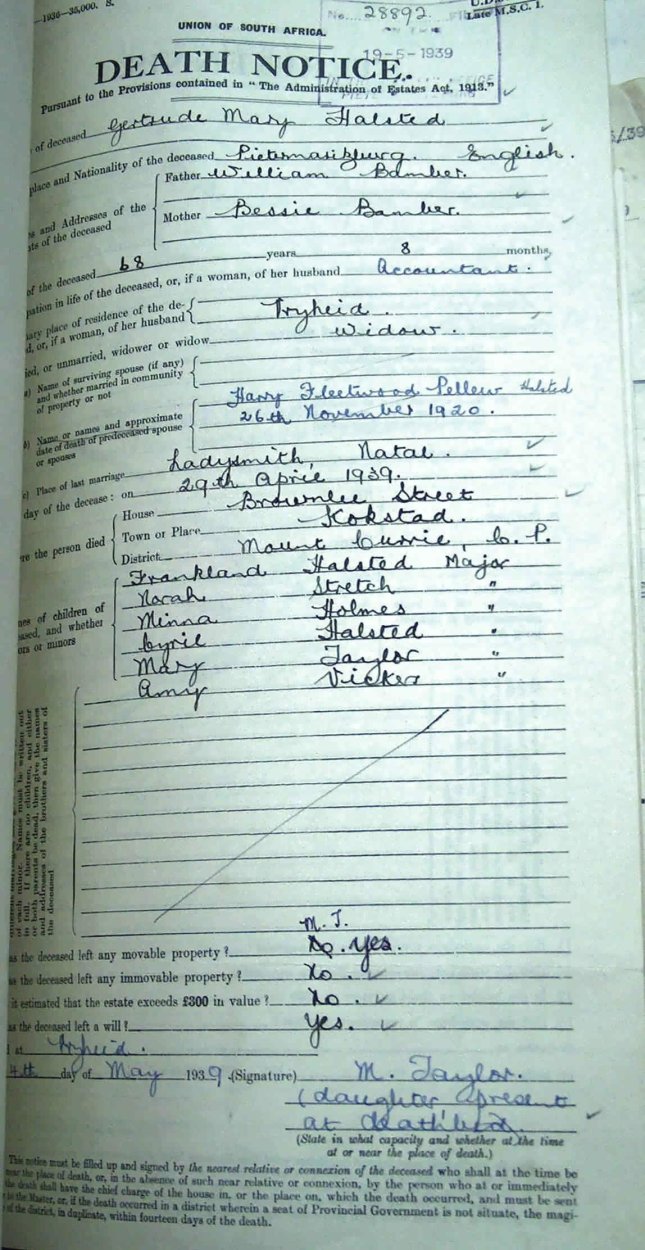 —1936—35,000. S.
No. 28892
Late M.S.C. 1.
UNION OF SOUTH AFRICA.
19-5-1939
DEATH NOTICE.
Pursuant to the Provisions contained in "The Administration of Estates Act, 1913."
of deceased Gertrude Mary Halsted
place and Nationality of the deceased Pietermaritzburg. English.
Father William Bamber.
es and Addresses of the
nts of the deceased
Mother Bessie Bamber.
of the deceased 68 years 8 months,
pation in life of the deceased, or, if a woman, of her husband Accountant.
ary place of residence of the de-
d, or, if a woman, of her husband Vryheid.
ied, or unmarried, widower or widow Widow.
a) Name of surviving spouse (if any)
and whether married in community
of property or not
b) Name or names and approximate
date of death of predeceased spouse
or spouses
Harry Fleetwood Pellew Halsted
26th November 1920.
c) Place of last marriage Ladysmith, Natal.
day of the decease: on 29th April 1939.
House Brownlee Street
re the person died
Town or Place Kokstad.
District Mount Currie, C. P.
nes of children of
ased, and whether
ors or minors
Frankland Halsted Major
Norah Stretch "
Minna Holmes "
Cyril Halsted "
Mary Taylor "
Amy Vicker "
of each minor. Names must be written out
in full. If there are no children, and either
or both parents be dead, then give the names
and addresses of the brothers and sisters of
the deceased
M. T.
as the deceased left any movable property? No. Yes.
as the deceased left any immovable property? No.
it estimated that the estate exceeds £300 in value? No.
as the deceased left a will? Yes.
at Vryheid.
4th day of May 1939. (Signature) M. Taylor.
(daughter, present
at deathbed.
(State in what capacity and whether at the time
at or near the place of death.)
This notice must be filled up and signed by the nearest relative or connexion of the deceased who shall at the time be
near the place of death, or, in the absence of such near relative or connexion, by the person who at or immediately
the death shall have the chief charge of the house in, or the place on, which the death occurred, and must be sent
to the Master, or, if the death occurred in a district wherein a seat of Provincial Government is not situate, the magi-
of the district, in duplicate, within fourteen days of the death.